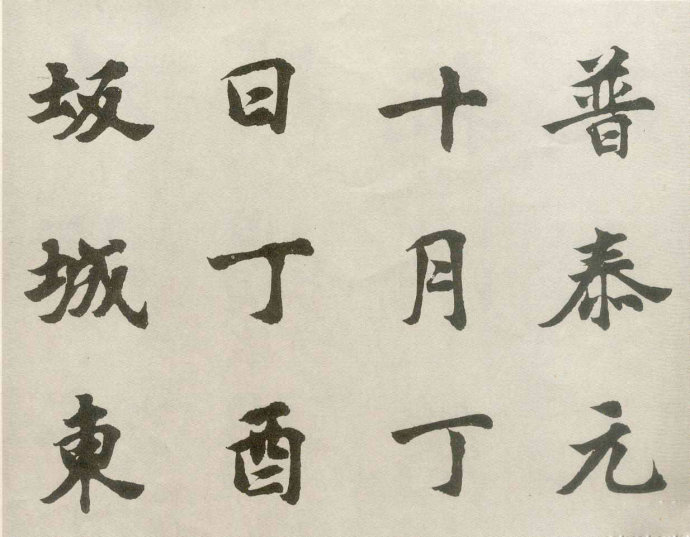 普泰元
十月丁
日丁酉
坂城東